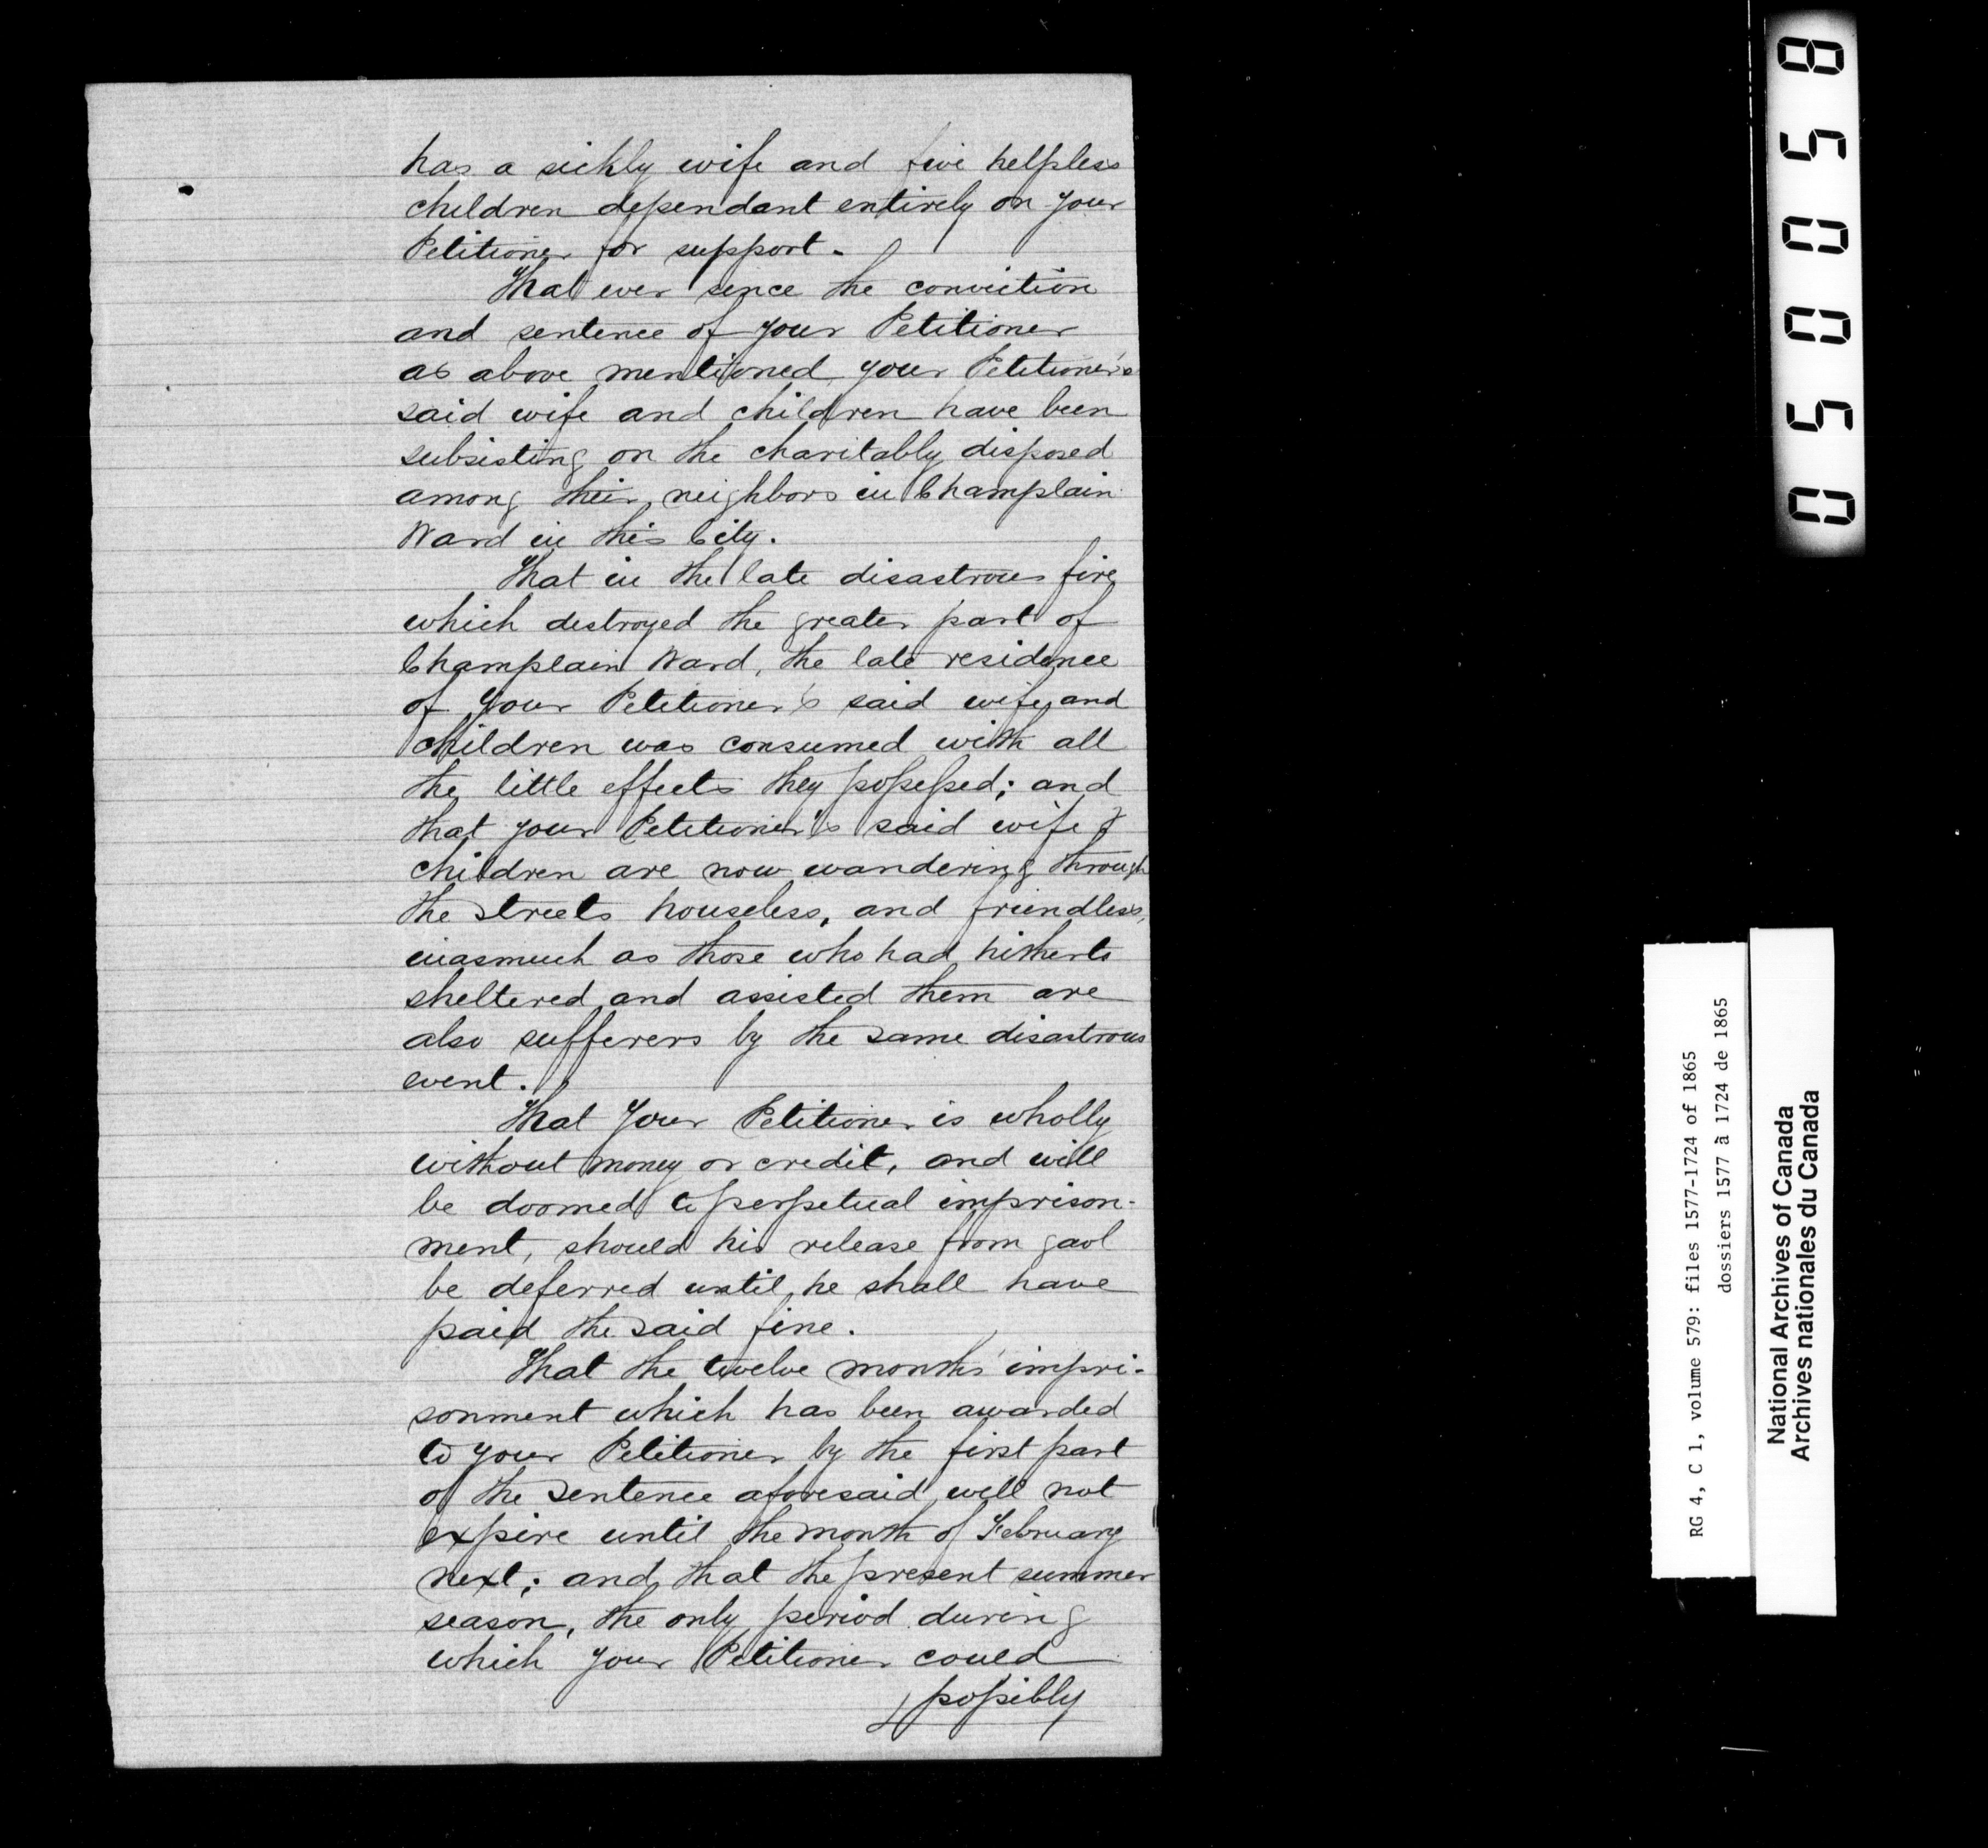 has a sickly wife and five helpless
children dependant entirely on your
Petitioner for support.
That ever since the conviction
and sentence of your Petitioner
as above mentioned your Petitioner's
said wife and children have been
subsisting on the charitably disposed
among their neighbors in Champlain
Ward in this City.
That in the late disastrous fire
which destroyed the greater part of
Champlain Ward, the late residence
of your Petitioner's said wife and
children was consumed with all
the little effects they possessed; and
that your Petitioner's said wife &
children are now wandering through
the streets houseless, and friendless,
inasmuch as those who had hitherto
sheltered and assisted them are
also sufferers by the same disastrous
event.
That Your Petitioner is wholly
without money or credit, and will
be doomed to perpetual imprison-
ment, should his release from gaol
be deferred until he shall have
paid the said fine.
That the twelve months' impri-
sonment which has been awarded
to your Petitioner by the first part
of the sentence aforesaid will not
expire until the month of February
next; and that the present summer
season, the only period during
which your Petitioner could
possibly
050058
RG 4, C 1, volume 579: files 1577-1724 of 1865
dossiers 1577 à 1724 de 1865
National Archives of Canada
Archives nationales du Canada